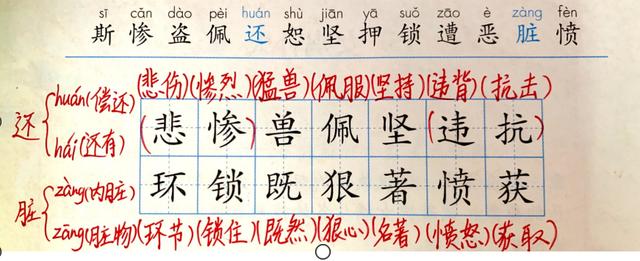 sī cǎn dào pèi huán shù jiān yā suǒ zāo è zàng fèn
斯 惨 盗 佩 还 恕 坚 押 锁 遭 恶 脏 愤
还 huán(偿还) (悲伤)(惨烈)(猛兽)(佩服)(坚持)(违背)(抗击)
hái(还有) (悲惨)兽佩坚(违抗)
脏 zàng(内脏) 环锁既狠著愤获
zāng(脏物)(环节)(锁住)(既然)(狠心)(名著)(愤怒)(获取)